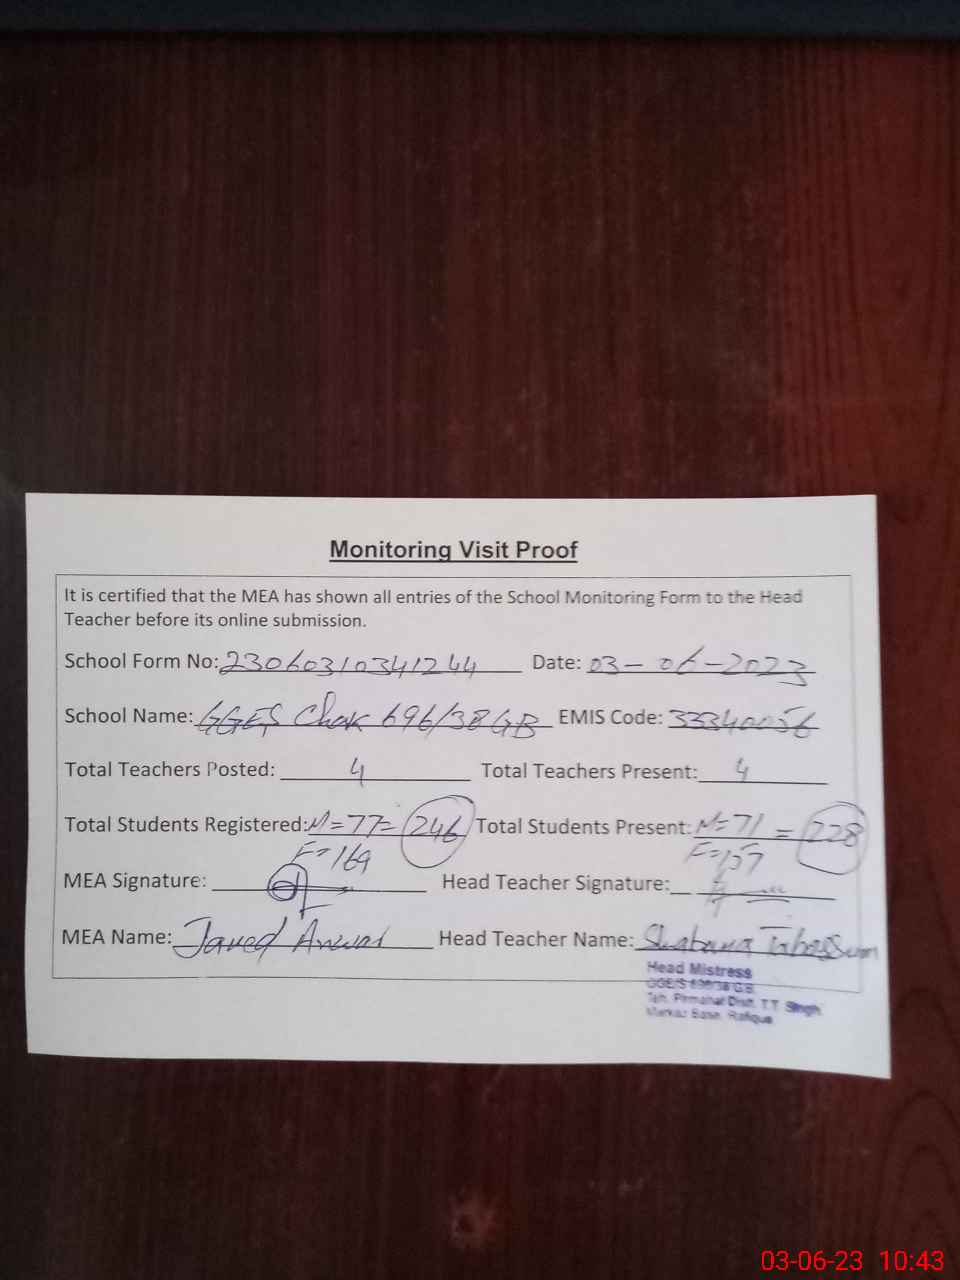 Monitoring Visit Proof
It is certified that the MEA has shown all entries of the School Monitoring Form to the Head
Teacher before its online submission.
School Form No: 23060310341244 Date: 03-06-2023
School Name: GGES Chak 696/38 GB EMIS Code: 33340056
Total Teachers Posted: 4 Total Teachers Present: 4
Total Students Registered: M=77= 246 Total Students Present: M=71 = 228
F=169 F=157
MEA Signature: Head Teacher Signature:
MEA Name: Javed Anwar Head Teacher Name: Shabana Tabassum
Head Mistress
GGE/S 696/38 G.B.
Teh. Pirmahal Distt. T.T. Singh
Markaz Base. Rafique
03-06-23 10:43